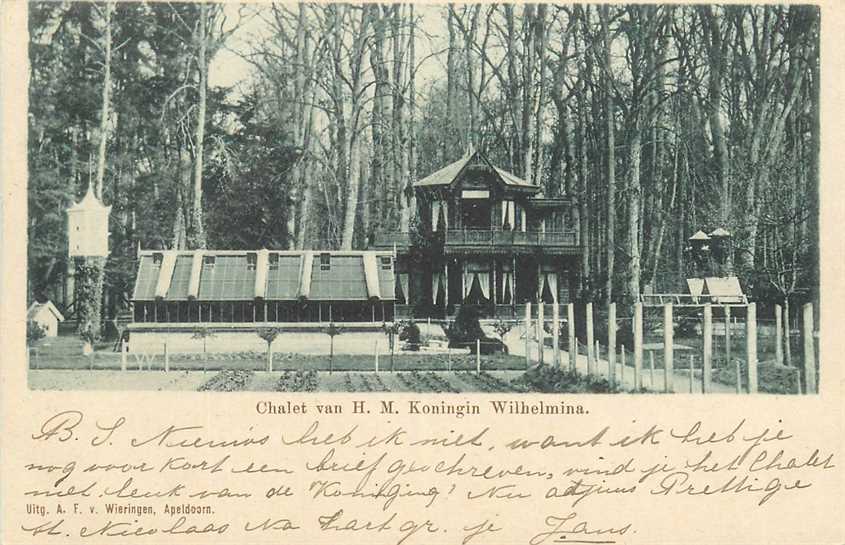 Chalet van H. M. Koningin Wilhelmina.
B. S. Nieuws heb ik niet, want ik heb je
nog voor kort een brief geschreven, vind je het Chalet
niet leuk van de Koningin? Nu adjuus Prettige
Uitg. A. F. v. Wieringen, Apeldoorn.
St. Nicolaas Na hart gr. je Jans.